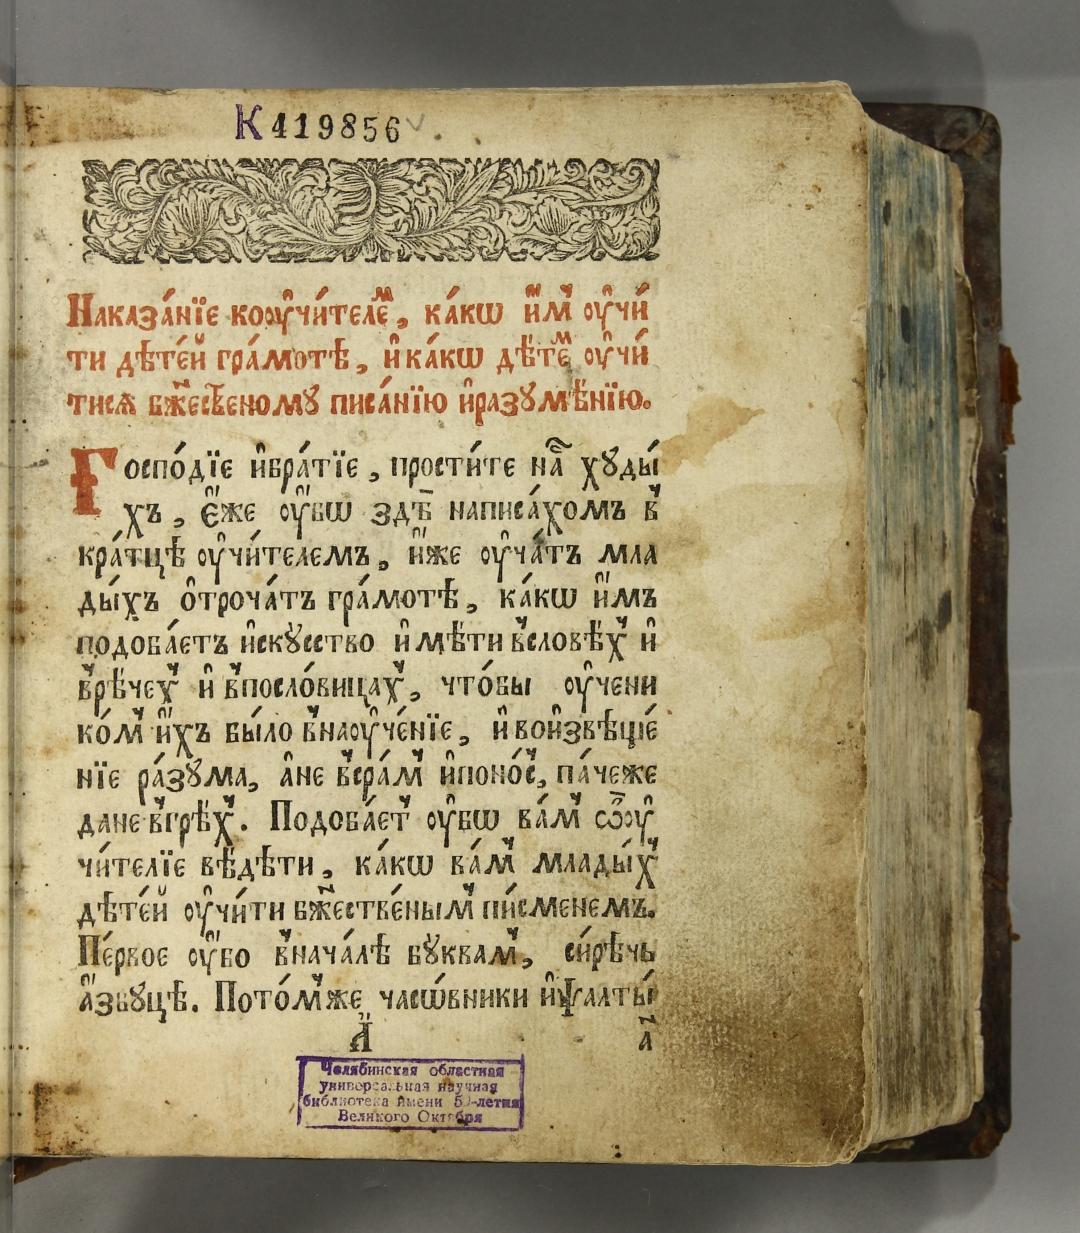 К 419856
Наказа́нїе коᲂу҆чи́телеⷨ, ка́кѡ и҆̀мъ ᲂу҆чи́
ти дѣте́й гра́мотѣ, и҆ ка́кѡ дѣ́теⷨ ᲂу҆чи́
тисѧ бж҃есвеному писа́нїю и҆ разꙋмѣ́нїю.
Госпо́дїе и҆ бра́тїе, прости́те на҃ хꙋды́
хъ, є҆́же ᲂу҆́бѡ здѣ̀ написа́хомъ в̾
кра́тцѣ ᲂу҆чи́телемъ, и҆́же ᲂу҆ча́тъ мла
ды́хъ о҆троча́тъ гра́мотѣ, ка́кѡ и҆́мъ
подоба́етъ и҆скꙋ́сство и҆мѣ́ти в̾словѣ́х̾ и҆
в̾рѣ́чех̾ и҆ в̾посло́вицах̾, что́бы ᲂу҆чени
ко́м̾ и҆́хъ бы́ло в̾наᲂу҆че́нїе, и҆ вои҆звѣще́
нїе ра́зꙋма, а҆не в̾сра́м̾ и҆ поно́с̾, па́чеже
дане в̾грѣ́х̾. Подоба́ет̾ ᲂу҆́бѡ ва́м̾ ѽᲂу҆
чи́телїе вѣ́дѣти, ка́кѡ ва́м̾ млады́х̾
дѣте́й ᲂу҆чи́ти бж҃естве́ным̾ пи́сменемъ.
Пе́рвое ᲂу҆́бо в̾нача́лѣ бꙋ́квам̾, си́рѣчь
а҆́збꙋцѣ. Пото́м̾же часѡ́вники и҆ ѱалты́
А҃ а҃
Челябинская областная
универсальная научная
библиотека имени 50-летия
Великого Октября